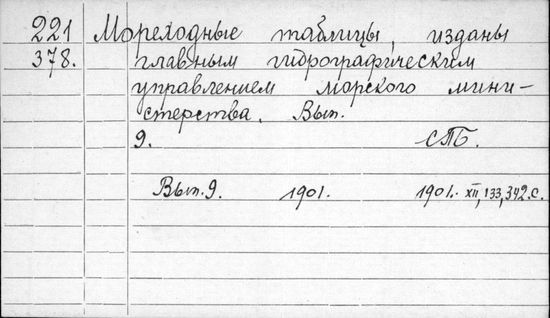 221 Мореходные таблицы, изданы
378. главным гидрографическим
управлением морского мини-
стерства. Вып.
9. СПБ.
Вып. 9. 1901. 1901. XII, 133, 342 с.